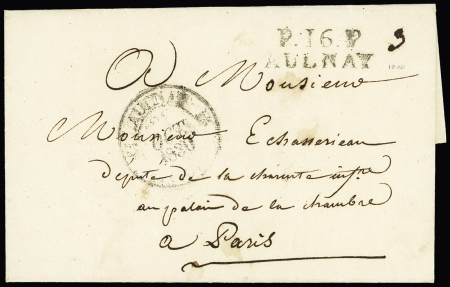 P.16.P
AULNAY
3
A Monsieur
Monsieur Echasserieau
député de la charente infre
au palais de la chambre
a Paris
AULNAY